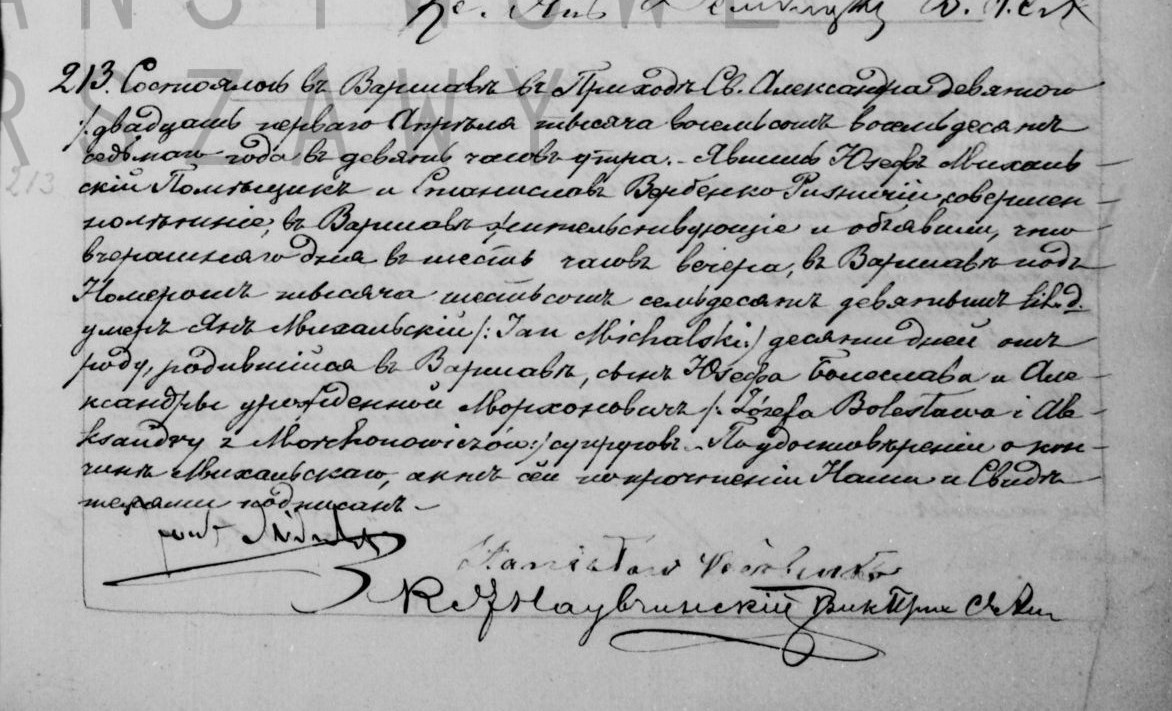 ANSTWOWE
RSZAWY
213
213. Состоялось въ Варшавѣ въ Приходѣ Св. Александра девятого
/:двадцать перваго Апрѣля тысяча восемьсотъ восемьдесятъ
седьмаго года въ девять часовъ утра. – Явились Юзефъ Михаль-
скій Помѣщикъ и Станиславъ Вербенко Ризничій, совершен-
нолѣтніе, въ Варшавѣ жительствующіе и объявили, что
вчерашняго дня въ шесть часовъ вечера, въ Варшавѣ подъ
Номеромъ тысяча шестьсотъ семьдесятъ девятымъ lit. d.
умеръ Янъ Михальскій /: Jan Michalski :/ десяти дней отъ
роду, родившійся въ Варшавѣ, сынъ Юзефа Болеслава и Але-
ксандры урожденной Морхоновичъ /: Józefa Bolesława i Ale-
ksandry z Morchonowiczów :/ супруговъ. – По удостовѣреніи о кон-
чинѣ Михальскаго, актъ сей по прочтеніи Нами и Свидѣ-
телями подписанъ –
Stanisław